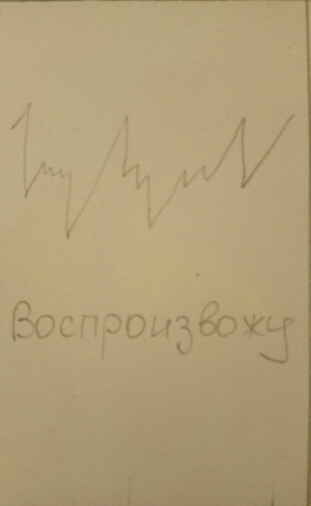 Воспроизвожу